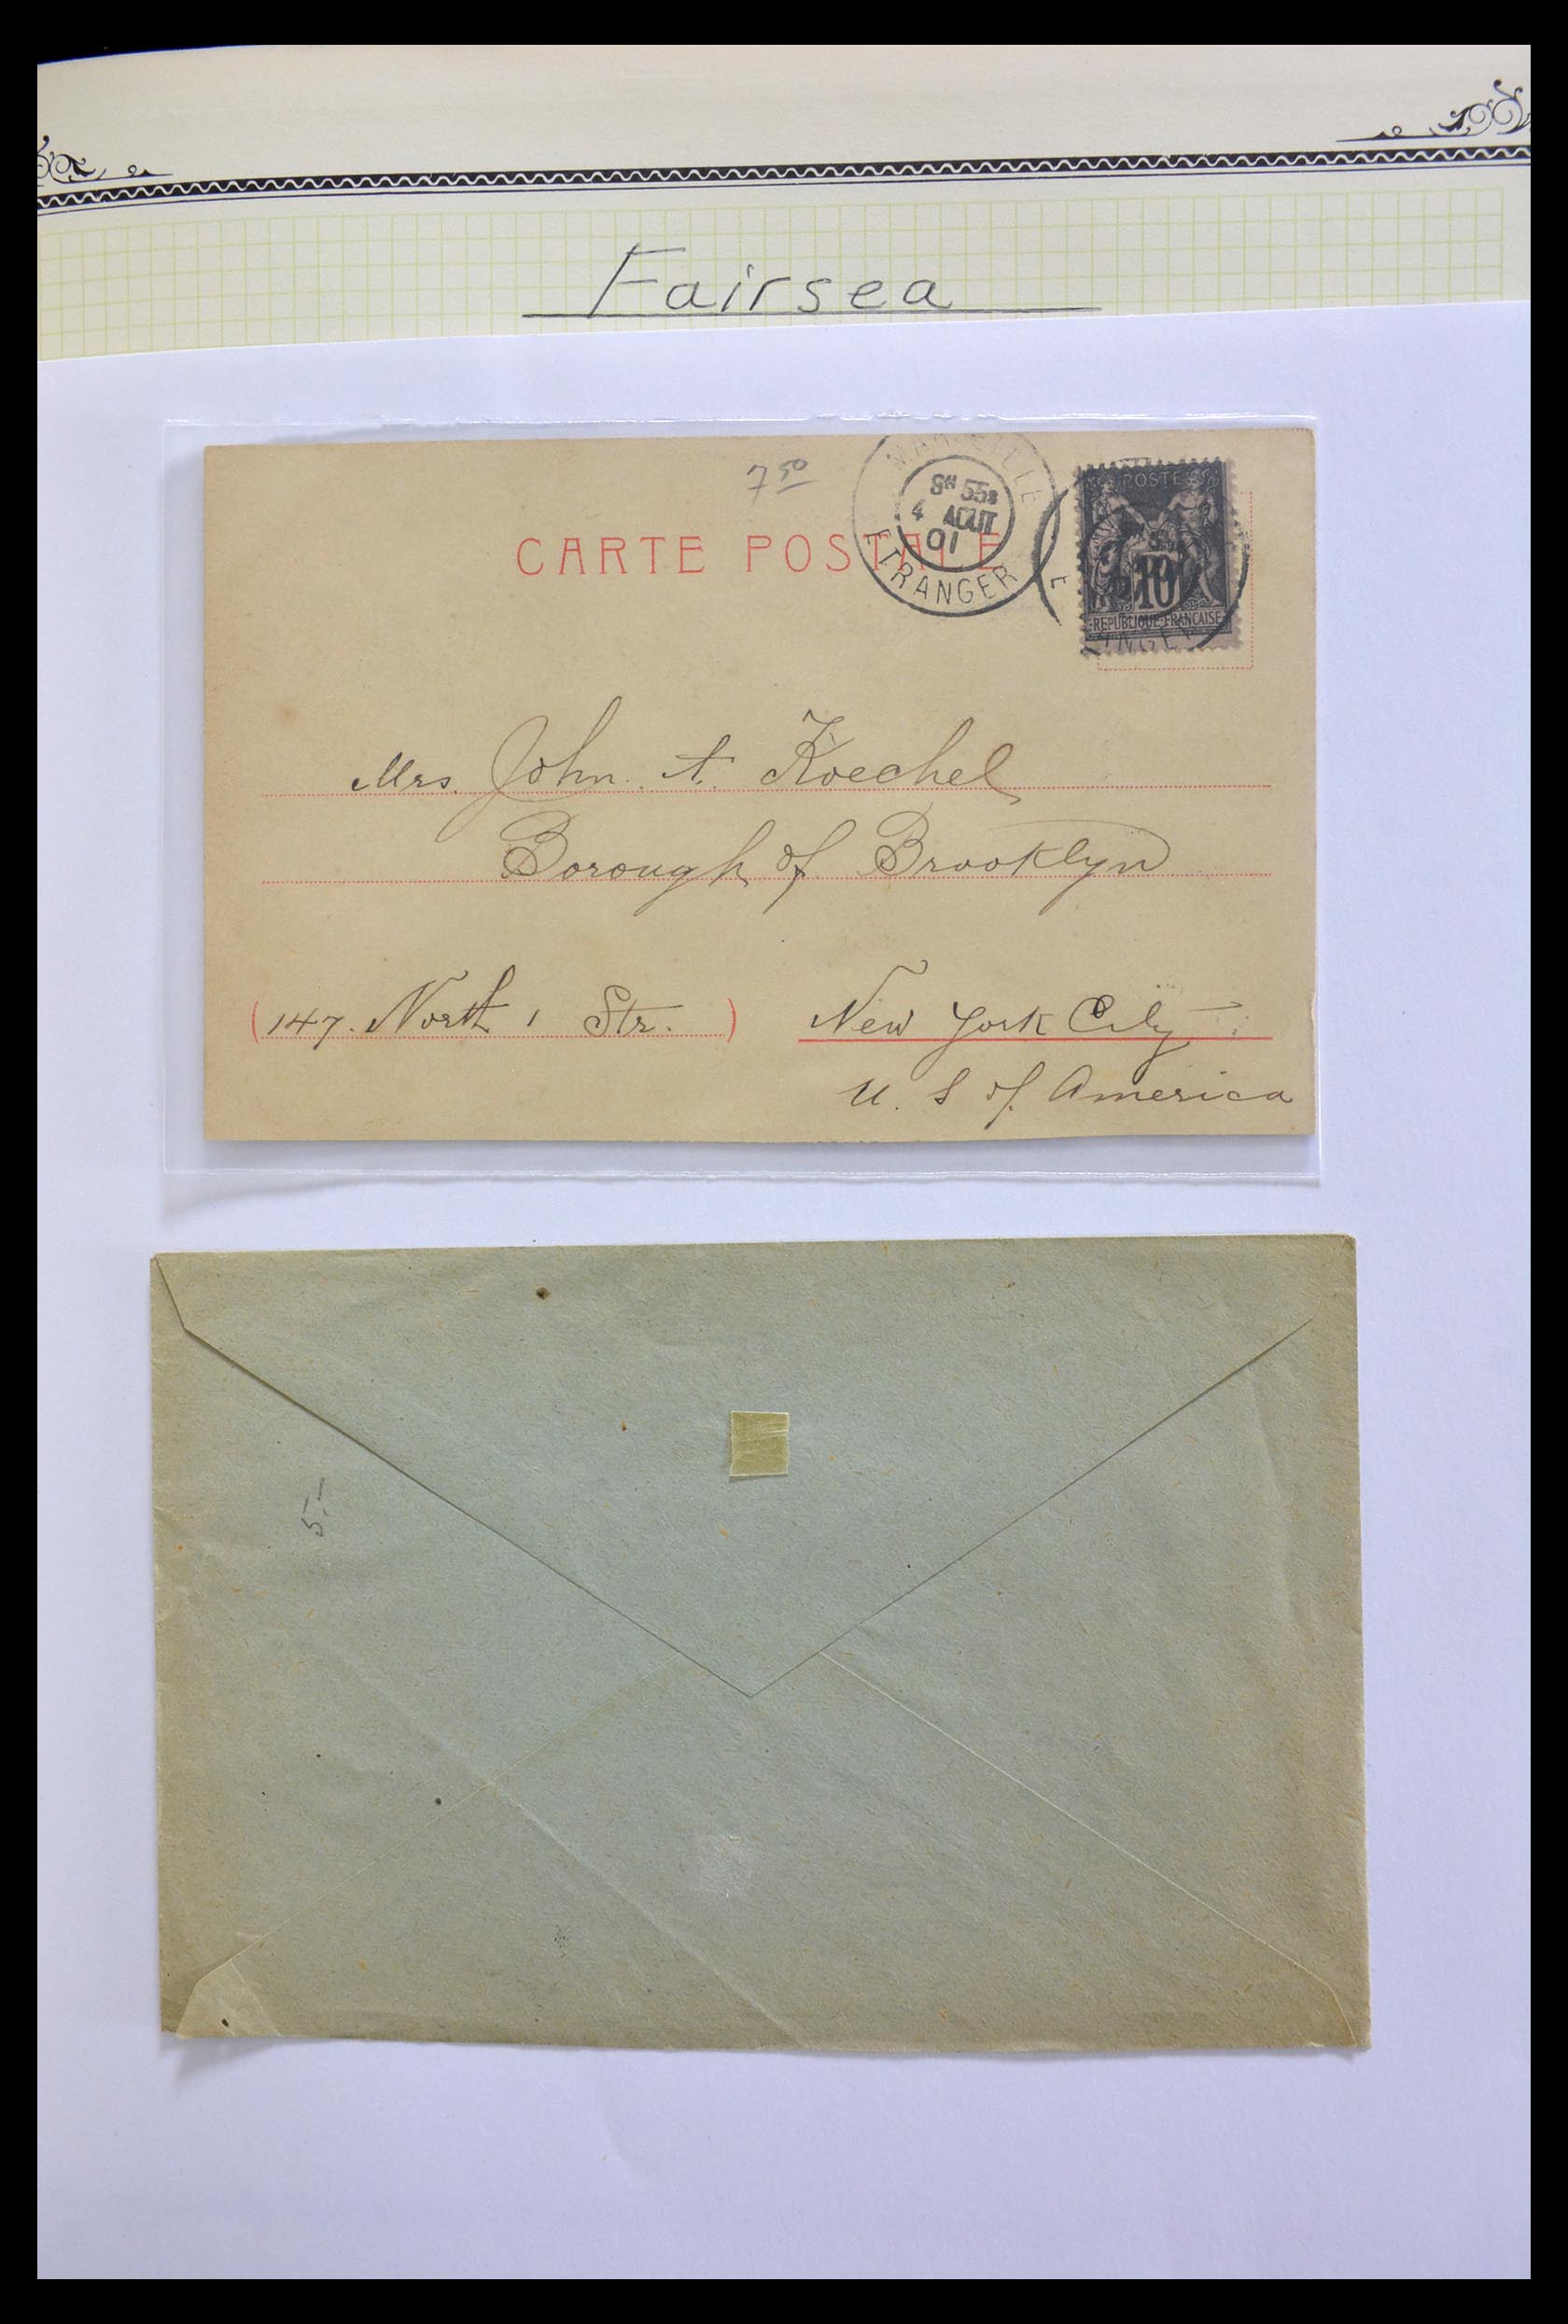 Fairsea
7 50
MARSEILLE
8H 55s
4 AOUT
01
ETRANGER
POSTE
10
REPUBLIQUE FRANCAISE
CARTE POSTALE
Mrs. John. A. Koechel
Borough of Brooklyn
(147. North 1 Str.) New York City
U. S of. America
5.-